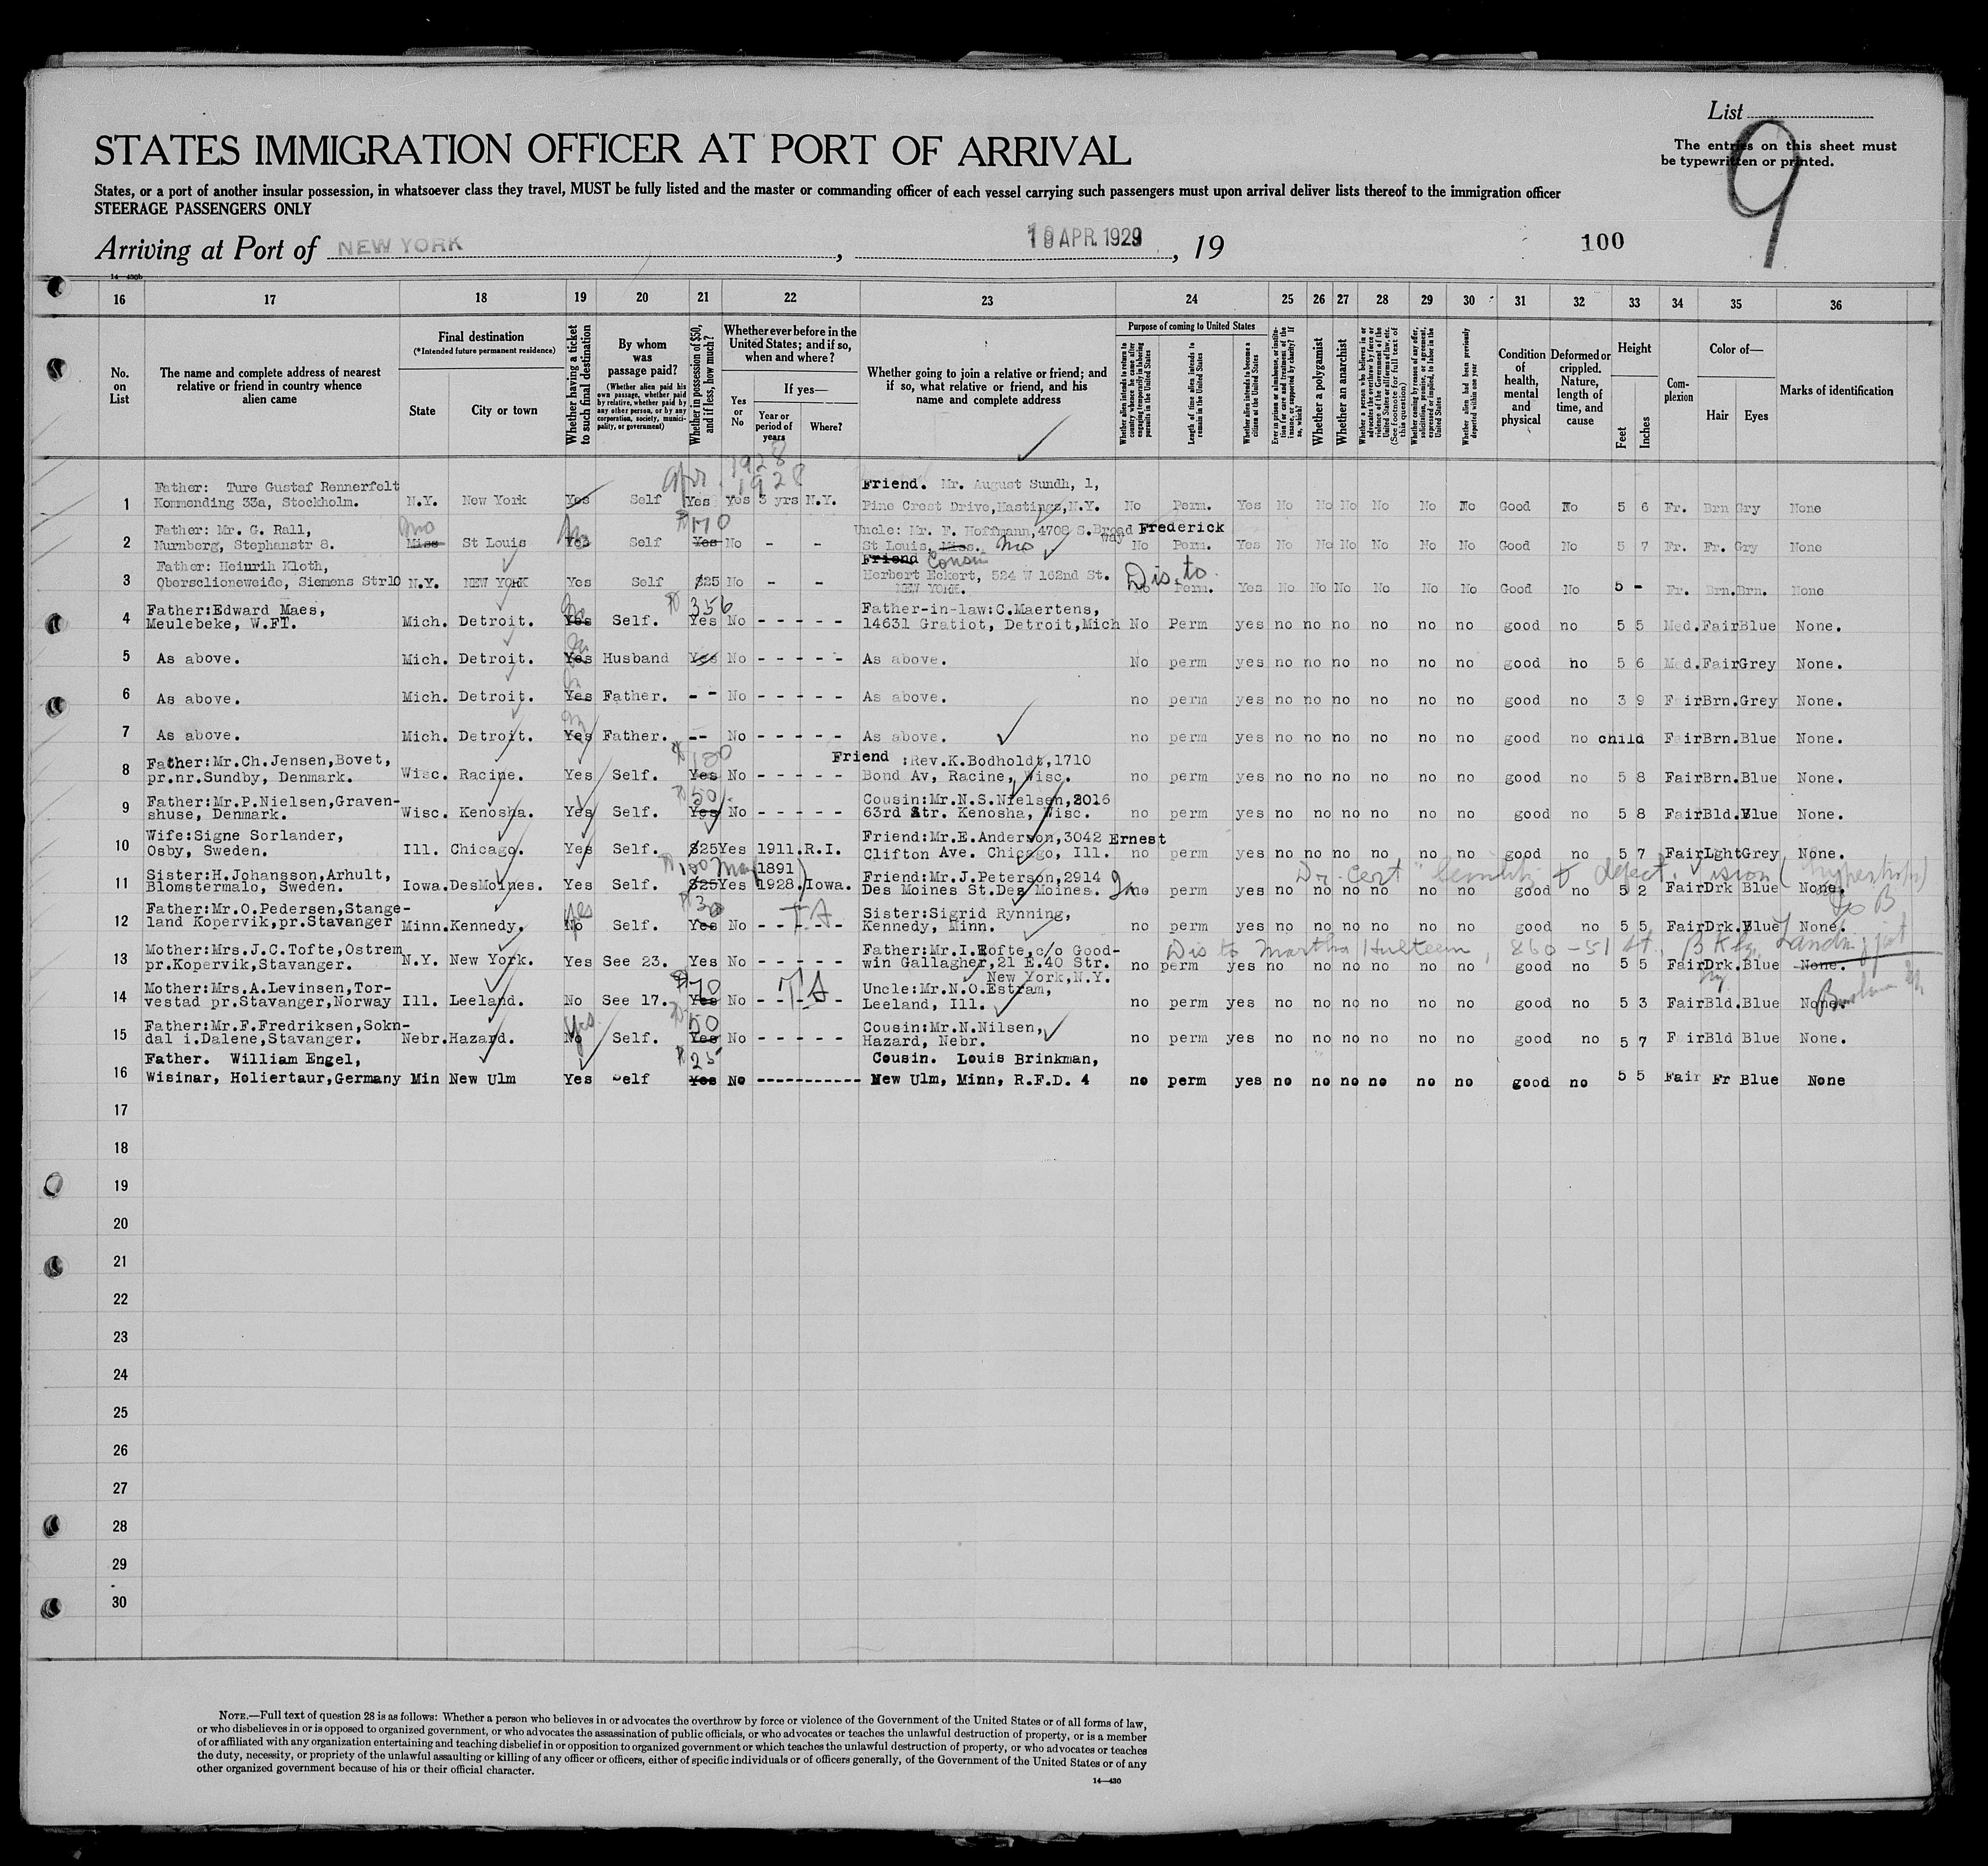 List
The entries on this sheet must
be typewritten or printed.
9
STATES IMMIGRATION OFFICER AT PORT OF ARRIVAL
States, or a port of another insular possession, in whatsoever class they travel, MUST be fully listed and the master or commanding officer of each vessel carrying such passengers must upon arrival deliver lists thereof to the immigration officer
STEERAGE PASSENGERS ONLY
Arriving at Port of NEW YORK, 19 APR. 1929, 19 100
16 17 18 19 20 21 22 23 24 25 26 27 28 29 30 31 32 33 34 35 36
No. on List
The name and complete address of nearest relative or friend in country whence alien came
Final destination
(*Intended future permanent residence)
State
City or town
Whether having a ticket to such final destination
By whom was passage paid?
(Whether alien paid his own passage, whether paid by relative, whether paid by any other person, or by any corporation, society, municipality, or government)
Whether in possession of $50, and if less, how much?
Whether ever before in the United States; and if so, when and where?
Yes or No
If yes—
Year or period of years
Where?
Whether going to join a relative or friend; and if so, what relative or friend, and his name and complete address
Purpose of coming to United States
Whether alien intends to return to country whence he came after engaging temporarily in laboring pursuits in the United States
Length of time alien intends to remain in the United States
Whether alien intends to become a citizen of the United States
Whether a polygamist
Whether an anarchist
Whether alien had been previously deported within one year
Condition of health, mental and physical
Deformed or crippled. Nature, length of time, and cause
Height
Feet
Inches
Complexion
Color of—
Hair
Eyes
Marks of identification
Apr. 1928
1928
1 Father: Ture Gustaf Rennerfelt Friend. Mr. August Sundh, 1,
Kommending 33a, Stockholm. N.Y. New York Yes Self Yes Yes 3 yrs N.Y. Pine Crest Drive, Hastings, N.Y. No Perm. Yes No No No No No No Good No 5 6 Fr. Brn Gry None
2 Father: Mr. G. Rall, Mo $170 Uncle: Mr. F. Hoffmann, 4708 S. Broadway Frederick
Nurnberg, Stephanstr 8. Miss St Louis Yes Self Yes No - - St Louis, Miss. Mo No Perm. Yes No No No No No No Good No 5 7 Fr. Fr. Gry None
3 Father: Heinrih Kloth, Friend Cousin
Obersclioneweide, Siemens Str10 N.Y. NEW YORK Yes Self $25 No - - Herbert Eckert, 524 W 162nd St. NEW YORK. Dis. to No Perm. Yes No No No No No No Good No 5 - Fr. Brn. Brn. None
4 Father:Edward Maes, $356 Father-in-law:C.Maertens,
Meulebeke, W.FT. Mich. Detroit. Yes Self. Yes No - - - - - 14631 Gratiot, Detroit,Mich No Perm yes no no no no no no good no 5 5 Med. Fair Blue None.
5 As above. Mich. Detroit. Yes Husband Yes No - - - - - As above. No perm yes no no no no no no good no 5 6 Med. Fair Grey None.
6 As above. Mich. Detroit. Yes Father. - - No - - - - - As above. no perm yes no no no no no no good no 3 9 Fair Brn. Grey None.
7 As above. Mich. Detroit. Yes Father. -- No - - - - - As above. no perm yes no no no no no no good no child Fair Brn. Blue None.
8 Father:Mr.Ch.Jensen,Bovet, $180 Friend :Rev.K.Bodholdt,1710
pr.nr.Sundby, Denmark. Wisc. Racine. Yes Self. Yes No - - - - - Bond Av, Racine, Wisc. no perm yes no no no no no no good no 5 8 Fair Brn. Blue None.
9 Father:Mr.P.Nielsen,Graven- $50 Cousin:Mr.N.S.Nielsen,2016
shuse, Denmark. Wisc. Kenosha. Yes Self. Yes No - - - - - 63rd Str. Kenosha, Wisc. no perm yes no no no no no no good no 5 8 Fair Bld. Blue None.
10 Wife:Signe Sorlander, Friend:Mr.E.Anderson,3042 Ernest
Osby, Sweden. Ill. Chicago. Yes Self. $25 Yes 1911. R.I. Clifton Ave. Chicago, Ill. no perm yes no no no no no no good no 5 7 Fair Lght Grey None.
11 Sister:H.Johansson,Arhult, $100 May 1891 Friend:Mr.J.Peterson,2914 Dr. Cert Senility & defect. vision
Blomstermalo, Sweden. Iowa. DesMoines. Yes Self. $25 Yes 1928. Iowa. Des Moines St.Des Moines. no perm yes no no no no no no good no 5 2 Fair Drk Blue None.
12 Father:Mr.O.Pedersen,Stange- yes $30 T A Sister:Sigrid Rynning,
land Kopervik,pr.Stavanger Minn. Kennedy. No Self. Yes No - - - - - Kennedy, Minn. no perm yes no no no no no no good no 5 5 Fair Drk. Blue None.
13 Mother:Mrs.J.C.Tofte,Ostrem Father:Mr.I.Rofte,c/o Good- Dis to Martha Hulteen, 860 - 51 St. Bklyn
pr.Kopervik,Stavanger. N.Y. New York. Yes See 23. Yes No - - - - - win Gallagher,21 E.40 Str. New York,N.Y. no perm yes no no no no no no good no 5 5 Fair Drk. Blue None.
14 Mother:Mrs.A.Levinsen,Tor- $70 T A Uncle:Mr.N.O.Estram,
vestad pr.Stavanger,Norway Ill. Leeland. No See 17. Yes No - - - - - Leeland, Ill. no perm yes no no no no no no good no 5 3 Fair Bld. Blue None.
15 Father:Mr.F.Fredriksen,Sokn- yes $50 Cousin:Mr.N.Nilsen,
dal i.Dalene,Stavanger. Nebr. Hazard. No Self. Yes No - - - - - Hazard, Nebr. no perm yes no no no no no no good no 5 7 Fair Bld Blue None.
16 Father. William Engel, $25 Cousin. Louis Brinkman,
Wisinar, Holiertaur,Germany Min New Ulm Yes Self Yes No ----------- New Ulm, Minn, R.F.D. 4 no perm yes no no no no no no good no 5 5 Fair Fr Blue None
17
18
19
20
21
22
23
24
25
26
27
28
29
30
NOTE.—Full text of question 28 is as follows: Whether a person who believes in or advocates the overthrow by force or violence of the Government of the United States or of all forms of law,
or who disbelieves in or is opposed to organized government, or who advocates the assassination of public officials, or who advocates or teaches the unlawful destruction of property, or is a member
of or affiliated with any organization entertaining and teaching disbelief in or opposition to organized government or which teaches the unlawful destruction of property, or who advocates or teaches
the duty, necessity, or propriety of the unlawful assaulting or killing of any officer or officers, either of specific individuals or of officers generally, of the Government of the United States or of any
other organized government because of his or their official character.
14—430